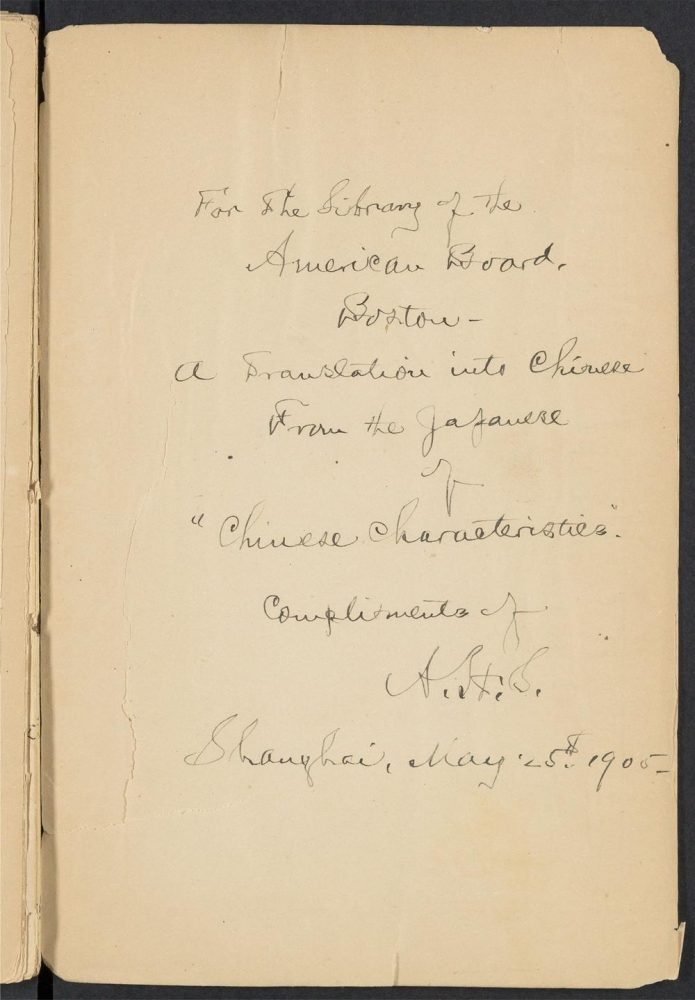 For The Library of the
American Board,
Boston—
A Translation into Chinese
From the Japanese
of
"Chinese Characteristics".
Compliments of
A.H.S.
Shanghai, May 25th. 1905—